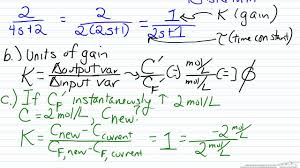 2/(4s+2) = 2/(2(2s+1)) = 1/(2s+1) K (gain)
τ (time constant)
b.) Units of gain
K = Δoutput var / Δinput var → C'/C'F (=) mol/L / mol/L (=) ∅
c.) If CF instantaneously ↑ 2 mol/L
C = 2 mol/L, Cnew?
K = Cnew - Ccurrent / CF,new - CF,current = 1 = -2 mol/L / 2 mol/L